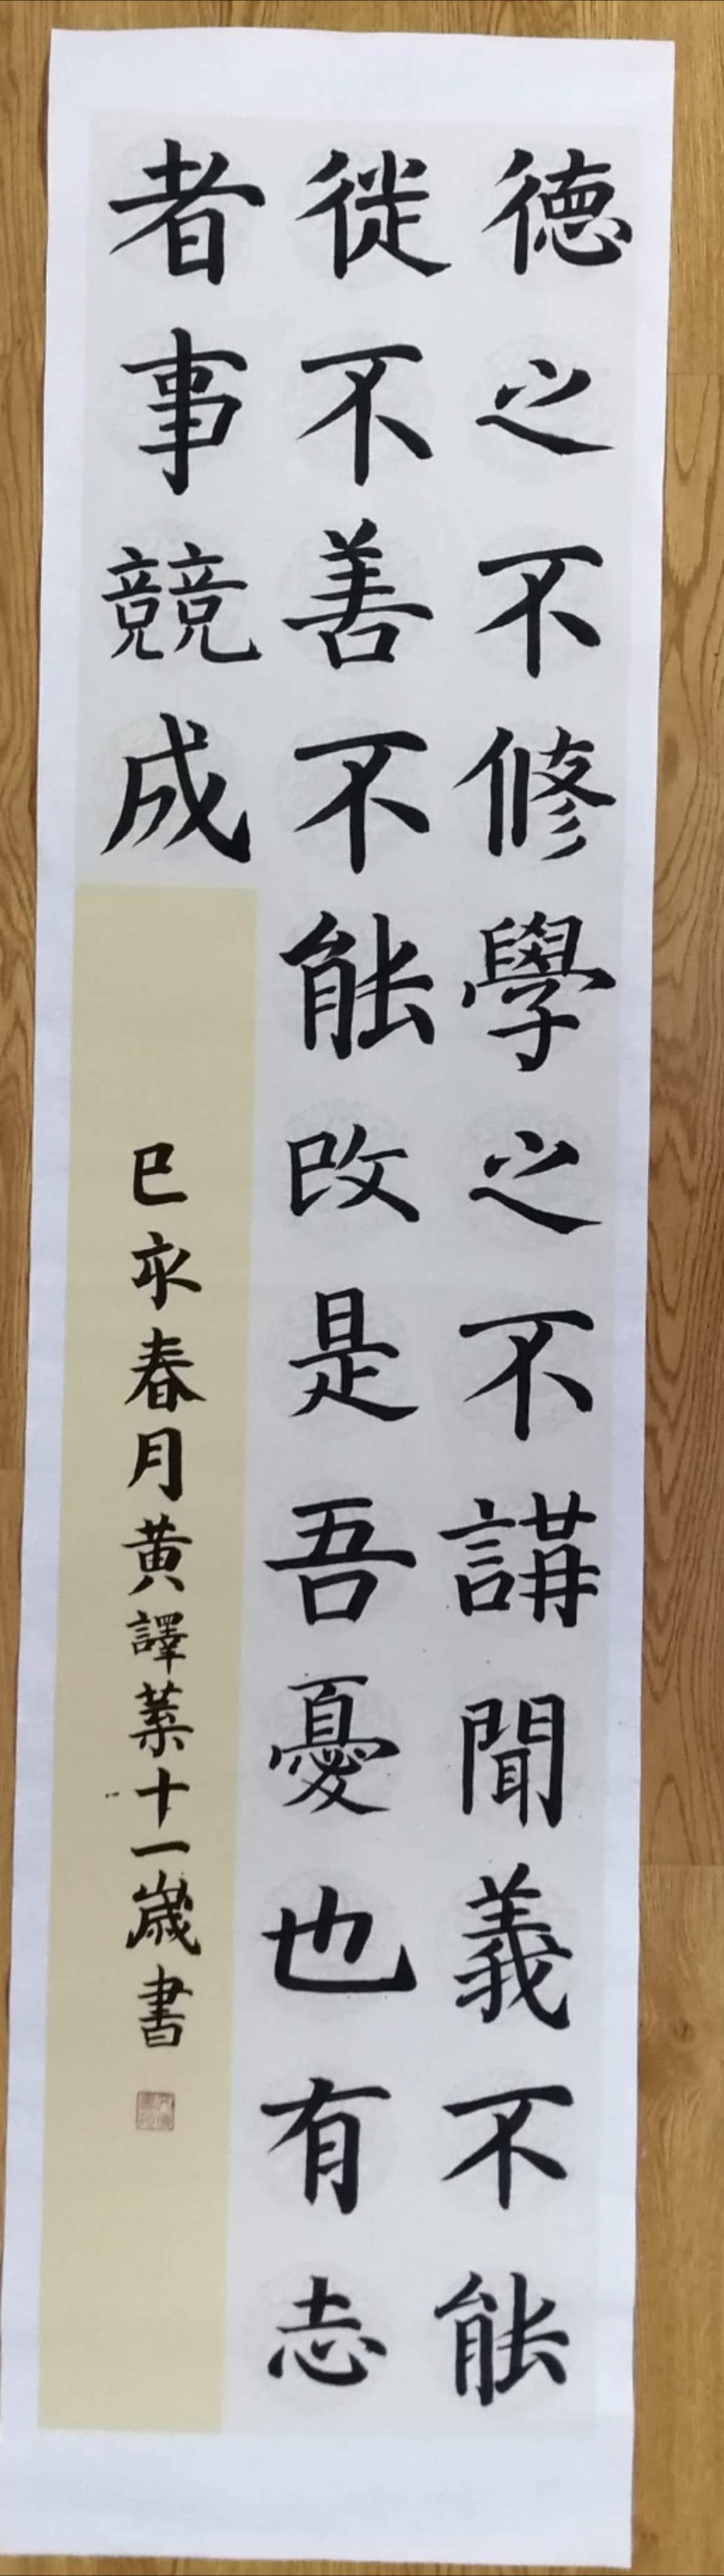 德之不修學之不講聞義不能
徙不善不能改是吾憂也有志
者事竸成
己亥春月黄譯葉十一歲書